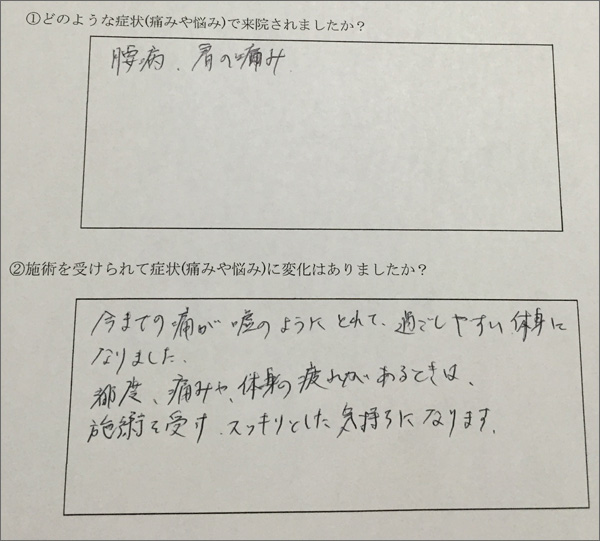 ①どのような症状(痛みや悩み)で来院されましたか?
腰痛、肩の痛み
②施術を受けられて症状(痛みや悩み)に変化はありましたか?
今までの痛が嘘のようにとれて、過ごしやすい体身に
なりました。
都度、痛みや、体身の疲れがあるときは、
施術を受す、スッキリとした気持ちになります。